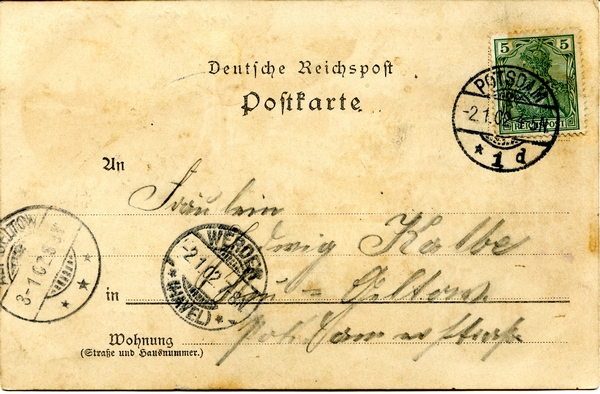 Deutsche Reichspost
Postkarte
5 5
REICHSPOST
POTSDAM
-2.1.02
* 1 d
An
Fräulein
Kolbe
ALT-GELTOW
3-1.02
WERDER
-2.1.02. 7-8N.
* (HAVEL) *
in
Alt-Geltow
Wohnung
(Straße und Hausnummer.)
Potsdamerstraße